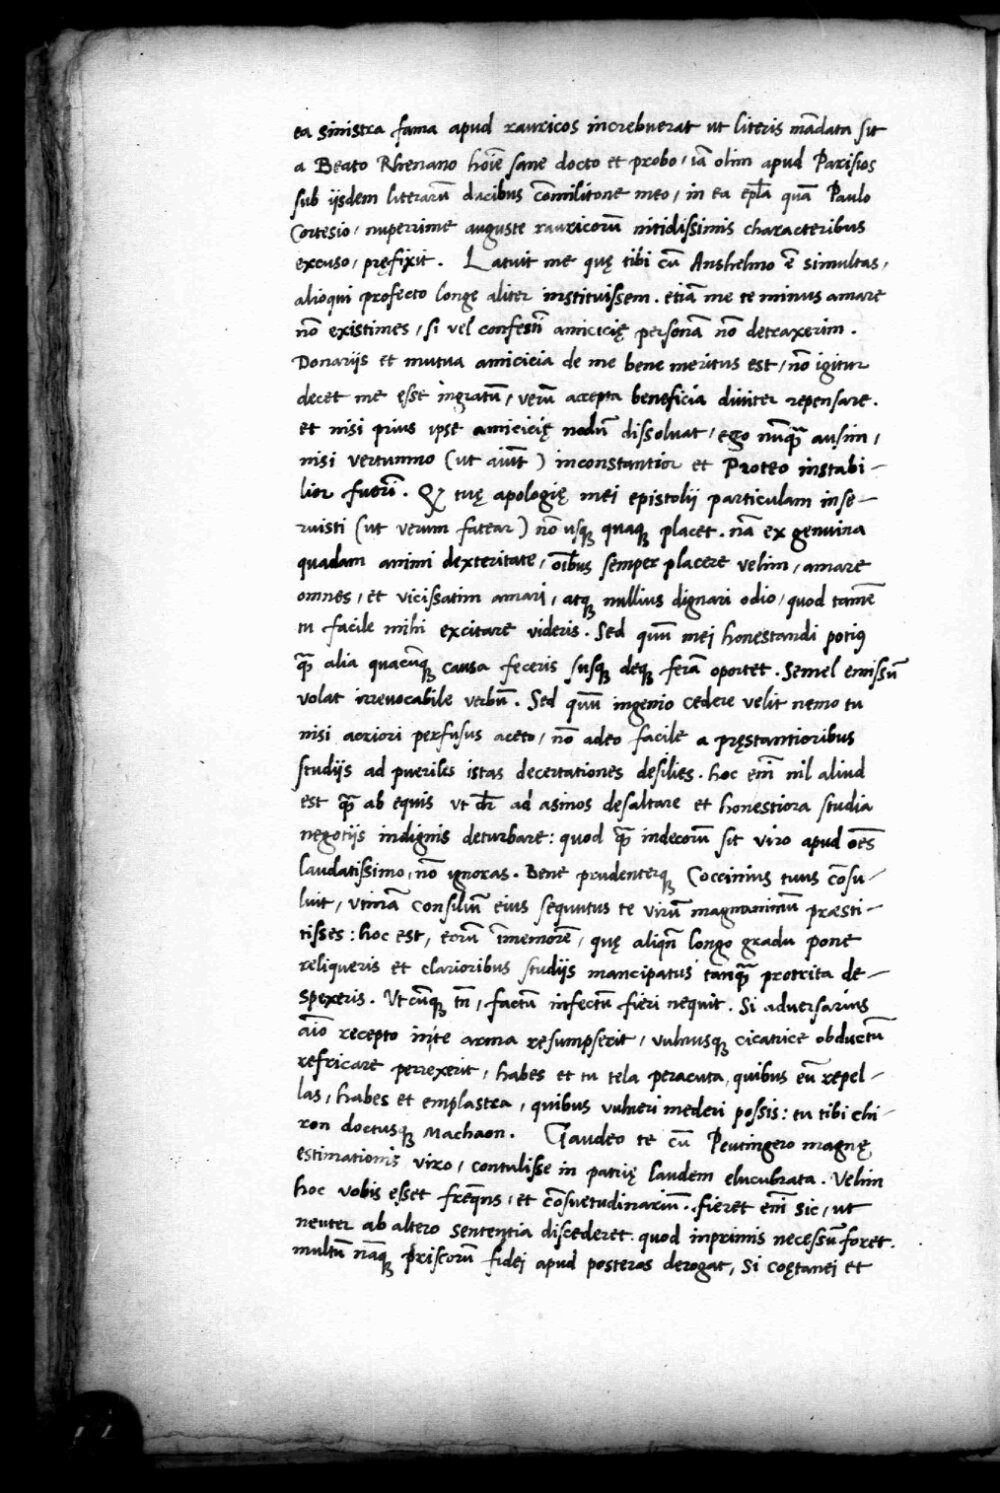 ea sinistra fama apud rauricos increbuerat ut literis mādata sit
a Beato Rhenano hoīe sane docto et probo, iā olim apud Parisios
sub ijsdem literarū ducibus cōmilitone meo, in ea epl̄a quā Paulo
Cortesio, nuperrime auguste rauricorū nitidissimis characteribus
excuso, pręfixit. Latuit me quę tibi cū Anshelmo ē simultas,
alioqui profecto longe aliter instituissem. etiā me te minus amare
nō existimes, si vel confestī amicicię personā nō detraxerim.
Donarijs et mutua amicicia de me bene meritus est, nō igitur
decet me esse ingratū, verū accepta beneficia duriter repensare.
et nisi prius ipse amicicię nodū dissoluat, ego nūqꝫ̄ ausim,
nisi vertumno (ut aiūt) inconstantior et Proteo instabi-
lior fuerī. Qꝫ tuę apologię mei epistolij particulam inse-
ruisti (ut verum fatear) nō usqꝫ quaqꝫ placet. nā ex genuina
quadam animi dexteritate, oībus semper placere velim, amare
omnes, et vicissatim amari, atqꝫ nullius dignari odio, quod tamē
tu facile mihi excitare videris. Sed quū mei honestandi potiꝰ
qꝫ̄ alia quacūqꝫ causa feceris susqꝫ deqꝫ ferā oportet. Semel emissū
volat irrevocabile verbū. Sed quū ingenio cedere velit nemo tu
nisi acriori perfusus aceto, nō adeo facile a pręstantioribus
studijs ad pueriles istas decertationes desilies. hoc enī nil aliud
est qꝫ̄ ab equis ut dr̄ ad asinos desaltare et honestiora studia
negotijs indignis deturbare: quod qꝫ̄ indecorū sit viro apud oēs
laudatissimo, nō ignoras. Bene prudenterqꝫ Coccinius tuus cōsu-
luit, utinā consiliū eius sequutus te virū magnanimū præsti-
tisses: hoc est, eorū īmemorē, quę aliqn̄ longo gradu pone
reliqueris et clarioribus studijs mancipatus tanqꝫ̄ protrita de-
spexeris. Utcūqꝫ tn̄, factū infectū fieri nequit. Si adversarius
aīo recepto in te arma resumpserit, vulnusqꝫ cicatrice obductū
refricare perrexerit, habes et tu tela peracuta, quibus eū repel-
las, habes et emplastra, quibus vulneri mederi possis: tu tibi chi-
ron doctusqꝫ Machaon. Gaudeo te cū Peutingero magnę
estimationis viro, contulisse in patrię laudem elucubrata. Velim
hoc vobis esset freqn̄s, et cōsuetudinariū. fieret enī sic, ut
neuter ab altero sententia discederet. quod inprimis necessū foret.
multū nāqꝫ priscorū fidei apud posteros derogat, si coętanei et